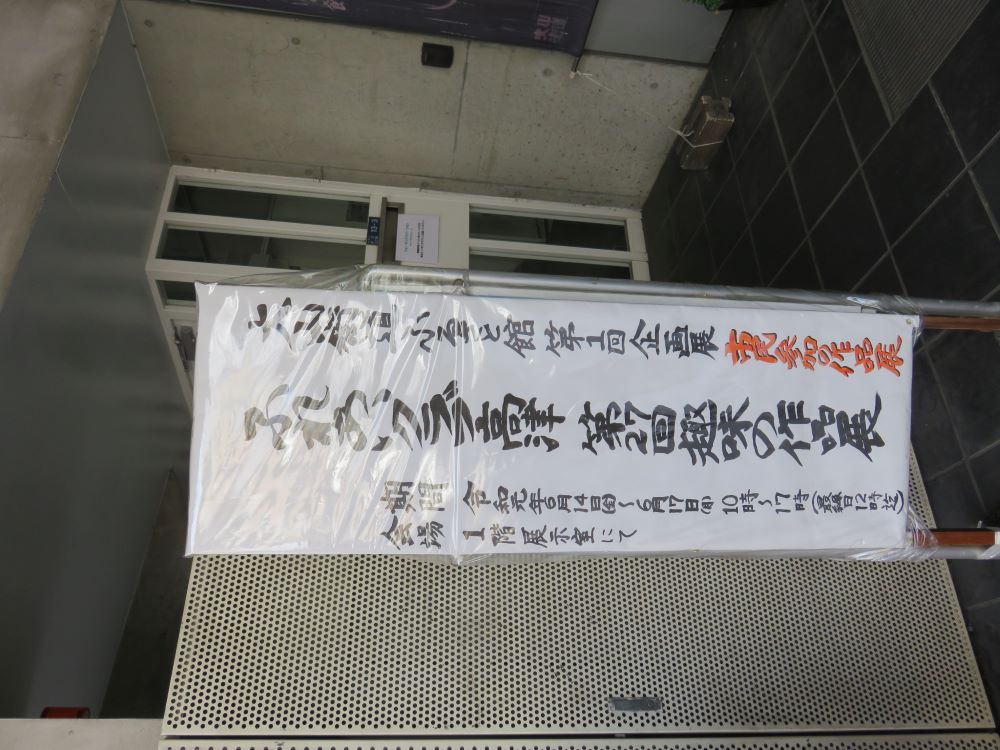 大山街道ふるさと館 第1回企画展 市民参加の作品展
ふれあいクラブ高津 第27回趣味の作品展
期間 令和元年6月14日㈮〜6月17日㈪ 10時〜17時(最終日12時迄)
会場 1階展示室にて